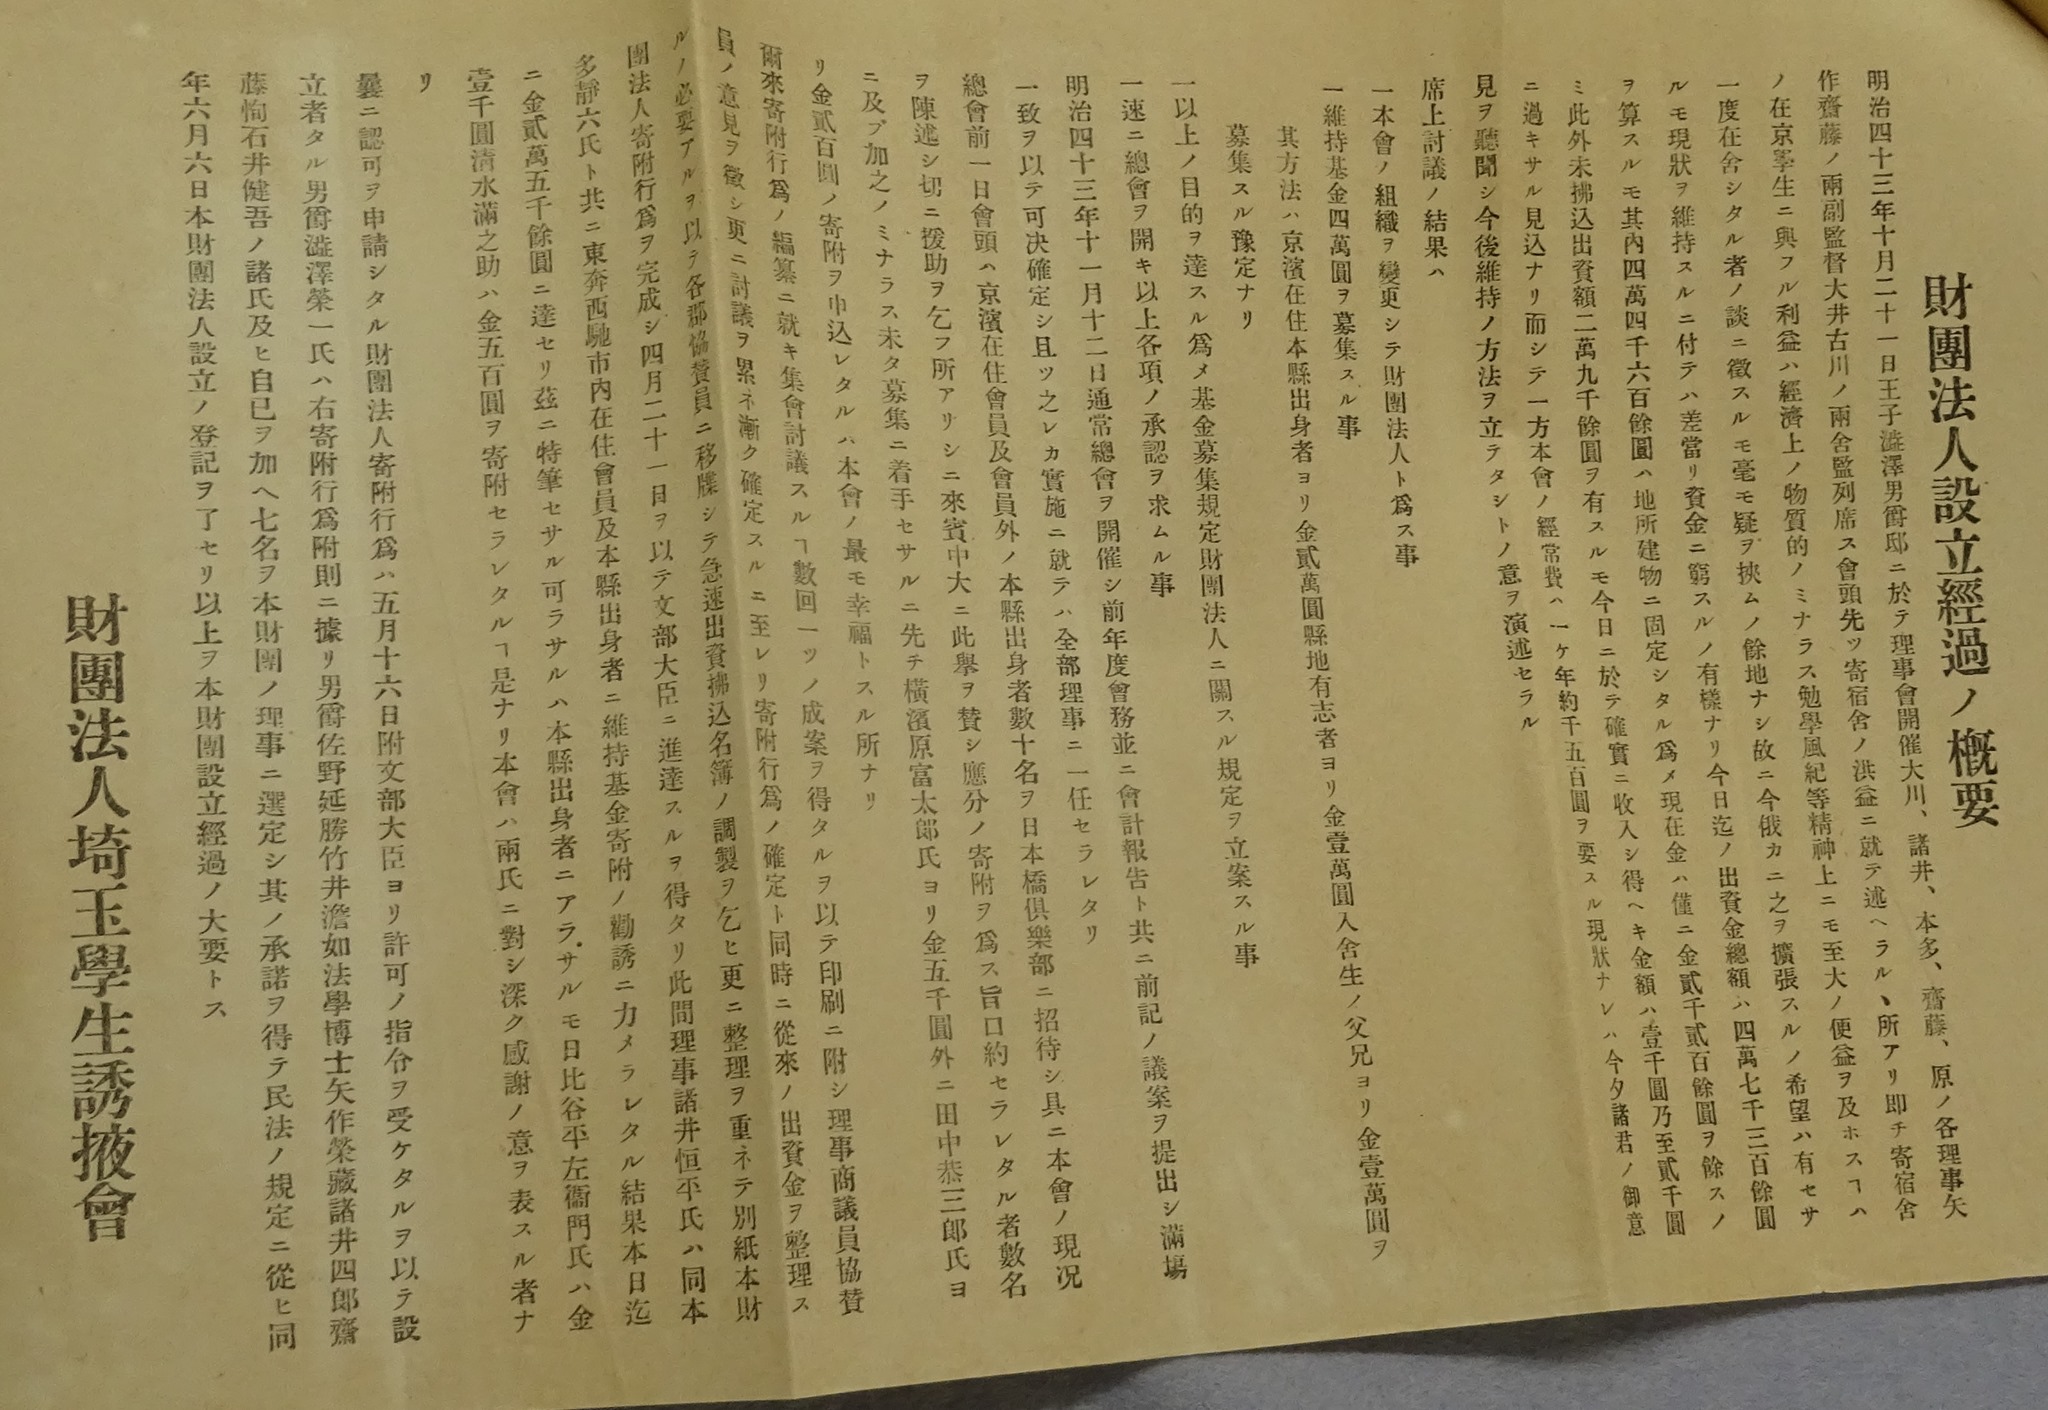 財團法人設立經過ノ概要
明治四十三年十月二十一日王子澁澤男爵邸ニ於テ理事會開催大川、諸井、本多、齋藤、原ノ各理事矢
作齋藤ノ兩副監督大井古川ノ兩舍監列席ス會頭先ツ寄宿舍ノ洪益ニ就テ述ヘラル、所アリ即チ寄宿舍
ノ在京學生ニ與フル利益ハ經濟上ノ物質的ノミナラス勉學風紀等精神上ニモ至大ノ便益ヲ及ホスヿハ
一度在舍シタル者ノ談ニ徵スルモ毫モ疑ヲ挾ムノ餘地ナシ故ニ今俄カニ之ヲ擴張スルノ希望ハ有セサ
ルモ現狀ヲ維持スルニ付テハ差當リ資金ニ窮スルノ有樣ナリ今日迄ノ出資金總額ハ四萬七千三百餘圓
ヲ算スルモ其內四萬四千六百餘圓ハ地所建物ニ固定シタル爲メ現在金ハ僅ニ金貳千貳百餘圓ヲ餘スノ
ミ此外未拂込出資額二萬九千餘圓ヲ有スルモ今日ニ於テ確實ニ收入シ得ヘキ金額ハ壹千圓乃至貳千圓
ニ過キサル見込ナリ而シテ一方本會ノ經常費ハ一ケ年約千五百圓ヲ要スル現狀ナレハ今夕諸君ノ御意
見ヲ聽聞シ今後維持ノ方法ヲ立テタシトノ意ヲ演述セラル
席上討議ノ結果ハ
一本會ノ組織ヲ變更シテ財團法人ト爲ス事
一維持基金四萬圓ヲ募集スル事
其方法ハ京濱在住本縣出身者ヨリ金貳萬圓縣地有志者ヨリ金壹萬圓入舍生ノ父兄ヨリ金壹萬圓ヲ
募集スル豫定ナリ
一以上ノ目的ヲ達スル爲メ基金募集規定財團法人ニ關スル規定ヲ立案スル事
一速ニ總會ヲ開キ以上各項ノ承認ヲ求ムル事
明治四十三年十一月十二日通常總會ヲ開催シ前年度會務並ニ會計報告ト共ニ前記ノ議案ヲ提出シ滿塲
一致ヲ以テ可決確定シ且ツ之レカ實施ニ就テハ全部理事ニ一任セラレタリ
總會前一日會頭ハ京濱在住會員及會員外ノ本縣出身者數十名ヲ日本橋俱樂部ニ招待シ具ニ本會ノ現况
ヲ陳述シ切ニ援助ヲ乞フ所アリシニ來賓中大ニ此擧ヲ賛シ應分ノ寄附ヲ爲ス旨口約セラレタル者數名
ニ及ブ加之ノミナラス未タ募集ニ着手セサルニ先チ橫濱原富太郎氏ヨリ金五千圓外ニ田中恭三郎氏ヨ
リ金貳百圓ノ寄附ヲ申込レタルハ本會ノ最モ幸福トスル所ナリ
爾來寄附行爲ノ編纂ニ就キ集會討議スルヿ數回一ツノ成案ヲ得タルヲ以テ印刷ニ附シ理事商議員協賛
員ノ意見ヲ徵シ更ニ討議ヲ累ネ漸ク確定スルニ至レリ寄附行爲ノ確定ト同時ニ從來ノ出資金ヲ整理ス
ルノ必要アルヲ以テ各郡協賛員ニ移牒シテ急速出資拂込名簿ノ調製ヲ乞ヒ更ニ整理ヲ重ネテ別紙本財
團法人寄附行爲ヲ完成シ四月二十一日ヲ以テ文部大臣ニ進達スルヲ得タリ此間理事諸井恒平氏ハ同本
多靜六氏ト共ニ東奔西馳市內在住會員及本縣出身者ニ維持基金寄附ノ勸誘ニ力メラレタル結果本日迄
ニ金貳萬五千餘圓ニ達セリ茲ニ特筆セサル可ラサルハ本縣出身者ニアラサルモ日比谷平左衞門氏ハ金
壹千圓淸水滿之助ハ金五百圓ヲ寄附セラレタルヿ是ナリ本會ハ兩氏ニ對シ深ク感謝ノ意ヲ表スル者ナ
リ
曩ニ認可ヲ申請シタル財團法人寄附行爲ハ五月十六日附文部大臣ヨリ許可ノ指令ヲ受ケタルヲ以テ設
立者タル男爵澁澤榮一氏ハ右寄附行爲附則ニ據リ男爵佐野延勝竹井澹如法學博士矢作榮藏諸井四郎齋
藤恂石井健吾ノ諸氏及ヒ自己ヲ加ヘ七名ヲ本財團ノ理事ニ選定シ其ノ承諾ヲ得テ民法ノ規定ニ從ヒ同
年六月六日本財團法人設立ノ登記ヲ了セリ以上ヲ本財團設立經過ノ大要トス
財團法人埼玉學生誘掖會